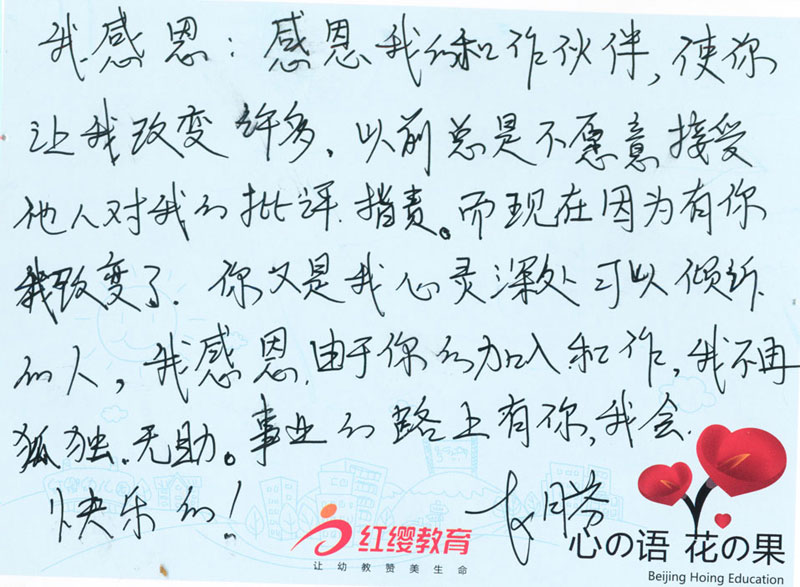 我感恩：感恩我的和作伙伴，使你
让我改变许多，以前总是不愿意接受
他人对我的批评.指责。而现在因为有你
我改变了.你又是我心灵深处可以倾诉.
的人，我感恩.由于你的加入和作，我不再
狐独.无助。事业的路上有你，我会.
快乐的！
红缨教育
让幼教赞美生命
心の语 花の果
Beijing Hoing Education